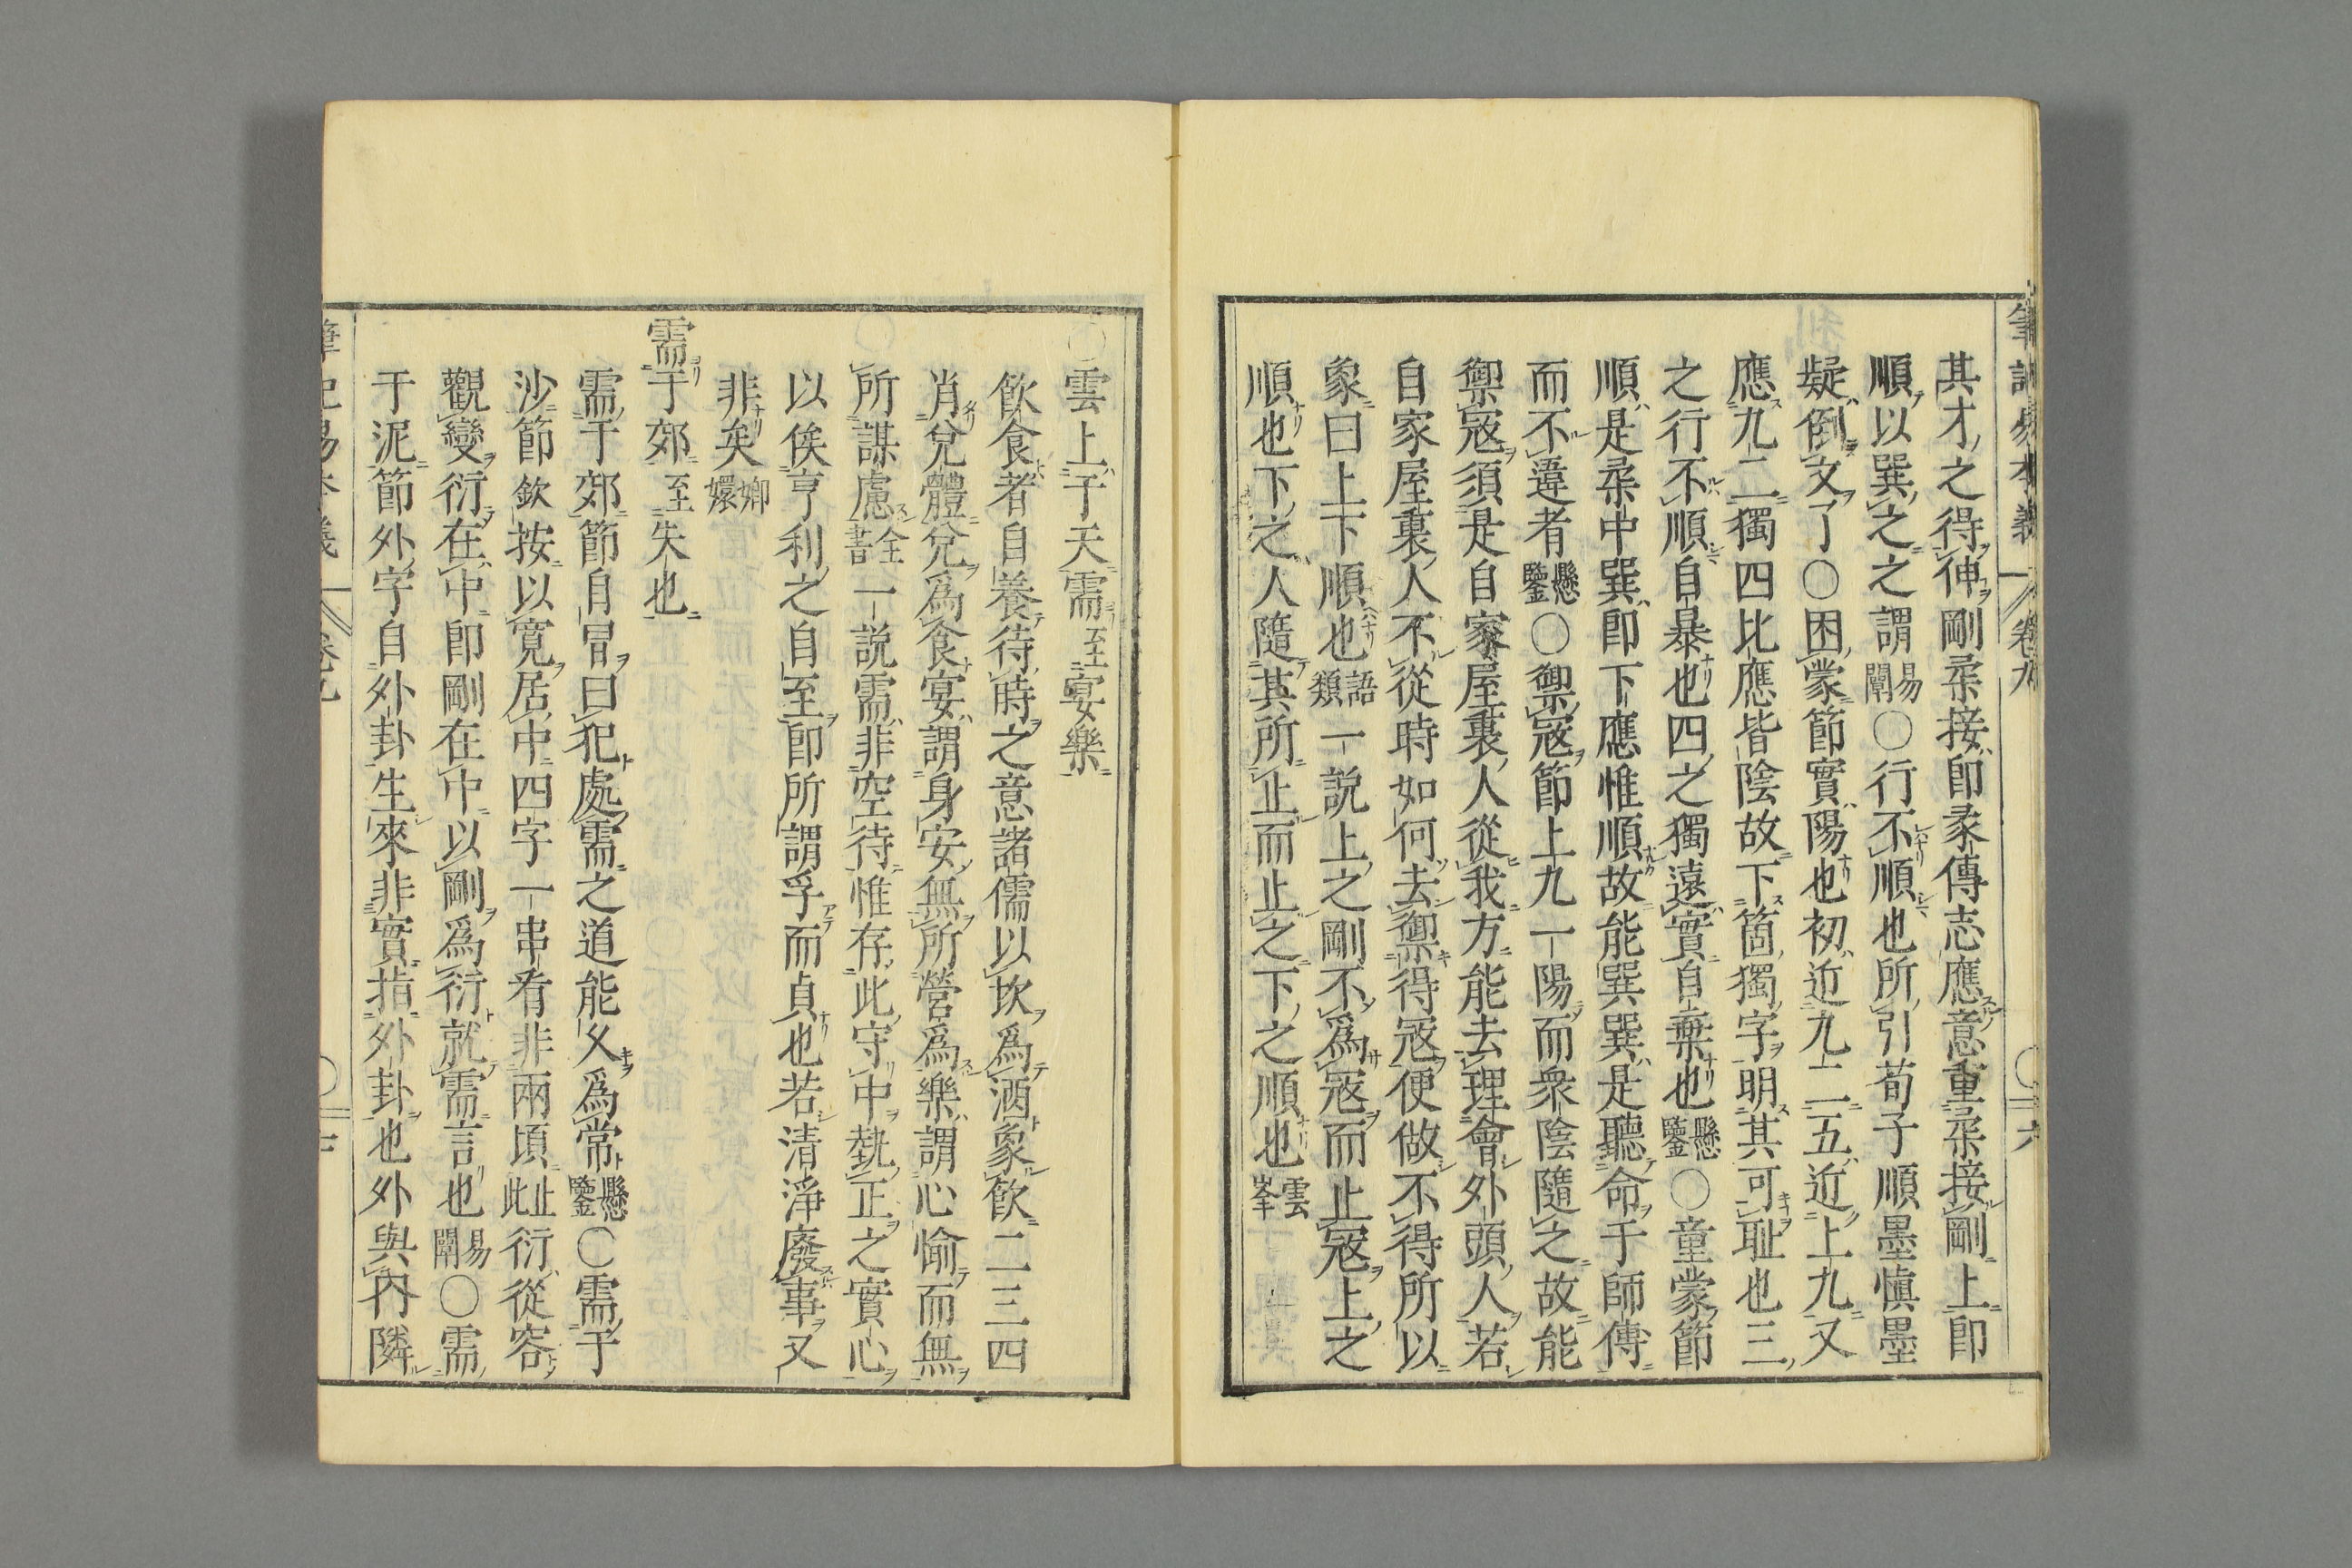 筆記易本義 卷九 六
其才之得伸剛柔接即彖傳志應意重柔接剛上即
順以巽之之謂易闡〇行不順也所引荀子順墨愼墨
疑倒文了〇困蒙節實陽也初近九二五近上九又
應九二獨四比應皆陰故下箇獨字明其可耻也三
之行不順自暴也四之獨遠實自棄也懸鑒〇童蒙節
順是柔中巽即下應惟順故能巽巽是聽命于師傳
而不違者懸鑒〇禦寇節上九一陽而衆陰隨之故能
禦寇須是自家屋裏人從我方能去理會外頭人若
自家屋裏人不從時如何去禦得寇便做不得所以
象曰上下順也語類一說上之剛不爲寇而止寇上之
順也下之人隨其所止而止之下之順也雲峯
〇雲上于天需至宴樂
飲食者自養待時之意諸儒以坎爲酒象飮二三四
肖兌體兌爲食宴謂身安無所營爲樂謂心愉而無
所謀慮全書一說需非空待惟存此守中埶正之實心
以俟亨利之自至即所謂孚而貞也若清淨廢事又
非矣嫏嬛
需于郊至失也
需于郊節自冒曰犯處需之道能久爲常懸鑒〇需于
沙節欽按以寬居中四字一串看非兩項止此衍從容
觀變衍在中即剛在中以剛爲衍就需言也易闡〇需
于泥節外字自外卦生來非實指外卦也外與內隣
筆記易本義 卷九